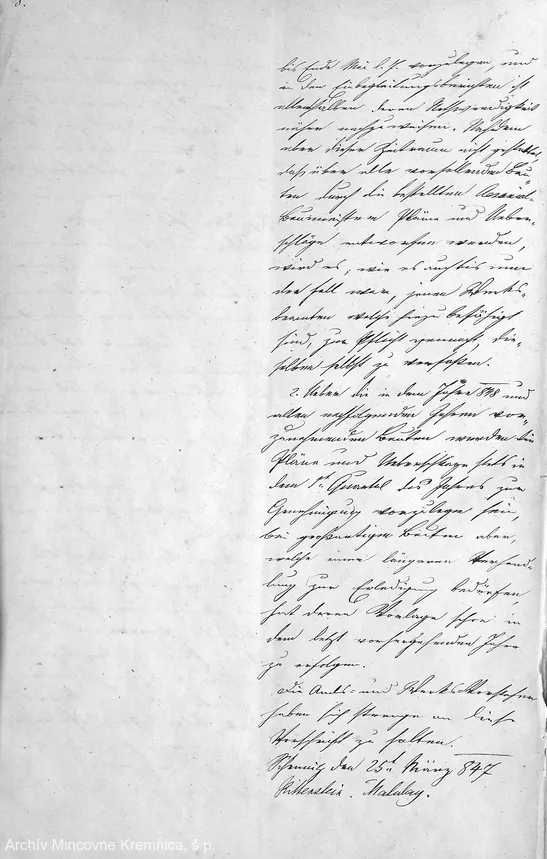 8.
bis Ende Mai l. J. vorzulegen, und
in den Einbegleitungsberichten ist
allenfalls deren Nothwendigkeit
näher nachzuweisen. Nachdem
aber dieser Zeitraum nicht gestattet,
daß über alle vorfallenden Bau-
ten durch die bestellten Aerarial-
Baumeister Pläne und Ueber-
schläge entworfen werden,
wird es, wie es auch bis nun
der Fall war, jenen Werks-
beamten welche hiezu befähigt
sind, zur Pflicht gemacht, die-
selben selbst zu verfassen.
2. Ueber die in dem Jahre 848 und
allen nachfolgenden Jahren vor-
zunehmenden Bauten werden die
Pläne und Ueberschläge stets in
dem 1st Quartal des Jahres zur
Genehmigung vorzulegen sein,
bei großartigen Bauten aber,
welche einer längeren Verhand-
lung zur Erledigung bedürfen,
hat deren Vorlage schon in
dem letzt vorhergehenden Jahre
zu erfolgen.
Die Amts- und Werks-Vorsteher
haben sich strenge an diese
Vorschrift zu halten.
Schemnitz den 25t März 847
Rittenstein. Malabay.
Archív Mincovne Kremnica, š.p.